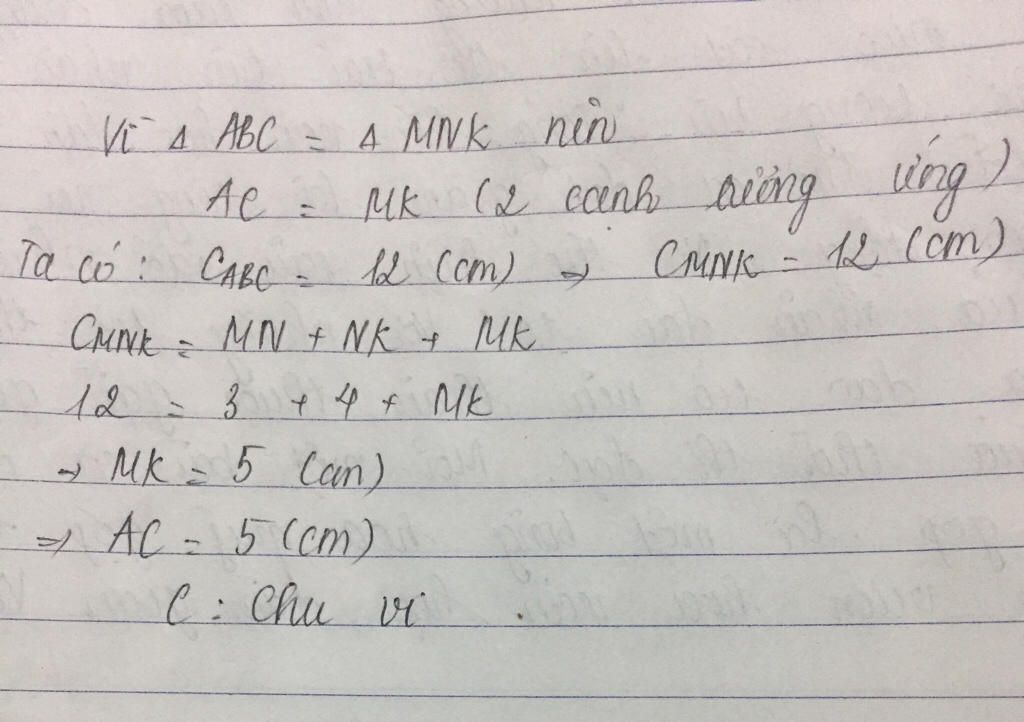 Vì Δ ABC = Δ MNK nên
AC = MK (2 cạnh tương ứng)
Ta có: CABC = 12 (cm) → CMNK = 12 (cm)
CMNK = MN + NK + MK
12 = 3 + 4 + MK
→ MK = 5 (cm)
⇒ AC = 5 (cm)
C : Chu vi